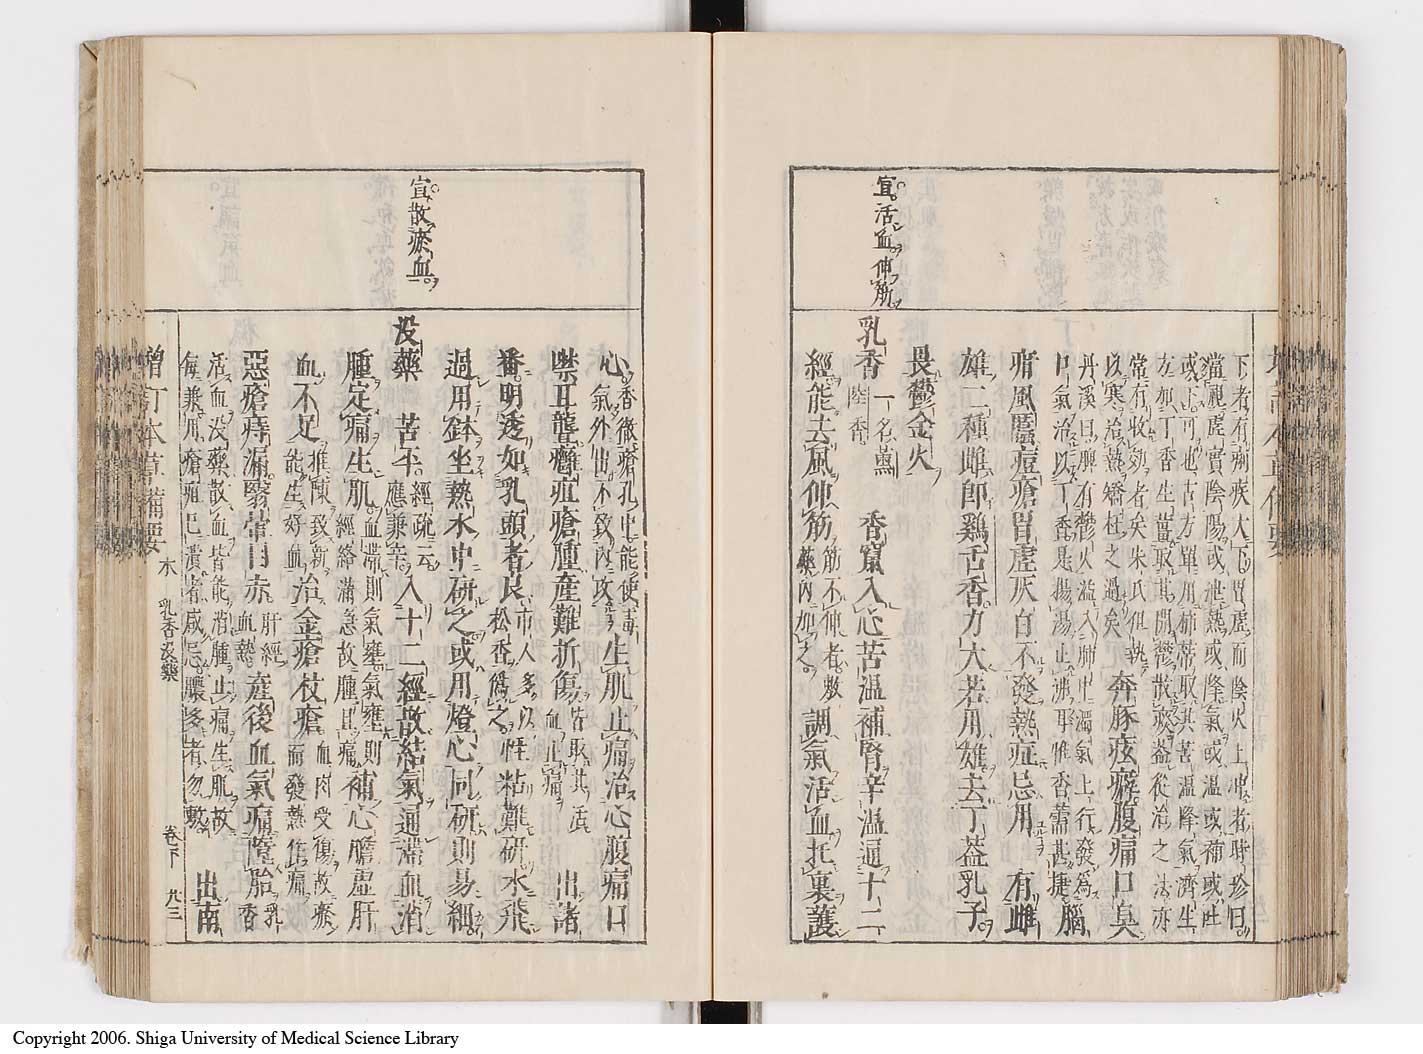 下者有痢疾大下胃虛而陰火上冲者時珍曰
當視虛實陰陽或泄熱或降氣或溫或補或吐
或下可也古方單用柿蒂取其苦溫降氣濟生
加丁香生薑取其開鬱散痰蓋從治之法亦
常有收効者矣朱氏但執
以寒治熱矯枉之過矣 奔豚痃癖腹痛口臭
丹溪曰脾有鬱火溢入肺中濁氣上行發為
口氣治以丁香是揚湯止沸耳惟香薷甚捷 腦
疳風䘌痘瘡胃虛灰白不發熱症忌用 有雌
雄二種雌即雞舌香力大若用雄去丁蓋乳子
畏鬱金火
宣活血伸筋
乳香 一名薰陸香 香竄入心苦溫補腎辛溫通十二
經能去風伸筋 筋不伸者敷藥內加之 調氣活血托裏護
心 香徹瘡孔中能使毒氣外出不致內攻 生肌止痛治心腹痛口
噤耳聾癰疽瘡腫產難折傷 皆取其活血止痛 出諸
番明透如乳頭者良 市人多以松香偽之 性粘難研水飛
過用鉢坐熱水中研之或用燈心同研則易細
宣散瘀血
沒藥 苦平 經疏云應兼辛 入十二經散結氣通滯血消
腫定痛生肌 血滯則氣壅氣壅則經絡滿急故腫且痛 補心膽虛肝
血不足 推陳致新能生好血 治金瘡杖瘡 血肉受傷故瘀而發熱作痛
惡瘡痔漏翳暈目赤 肝經血熱 產後血氣痛墮胎 乳香
活血沒藥散血皆能消腫止痛生肌故
每兼用瘡疽已潰者咸忌膿多者勿敷 出南
增訂本草備要 木 乳香沒藥 卷下 九三